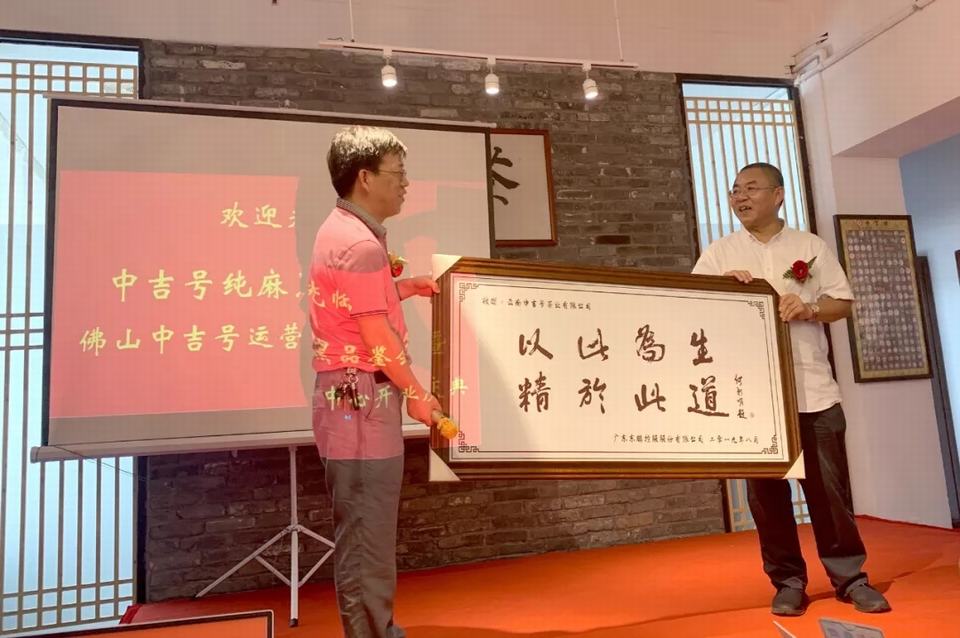 欢迎光临
中吉号纯麻黑品鉴会
佛山中吉号运营中心开业庆典
云南中吉号茶业有限公司
以此為生
精於此道
广东东鹏控股股份有限公司 二零一九年八月